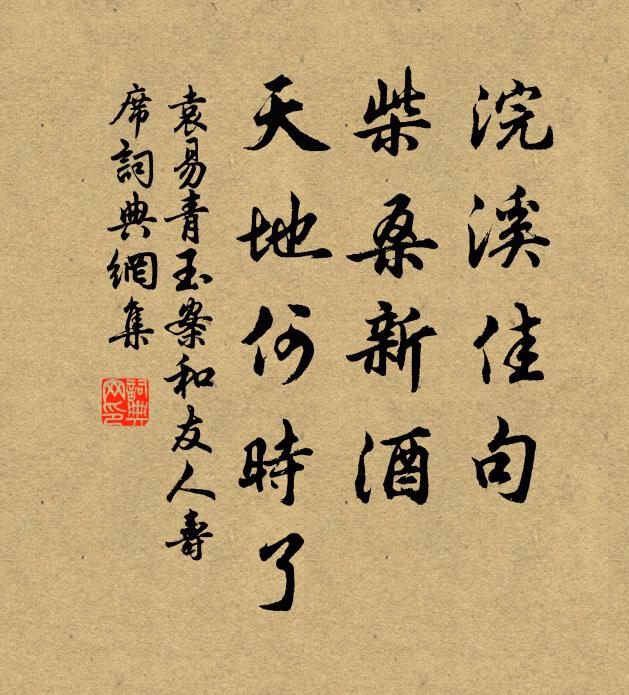 浣溪佳句
柴桑新酒
天地何時了
袁易青玉案和友人壽
席詞典網集
詞典
網印